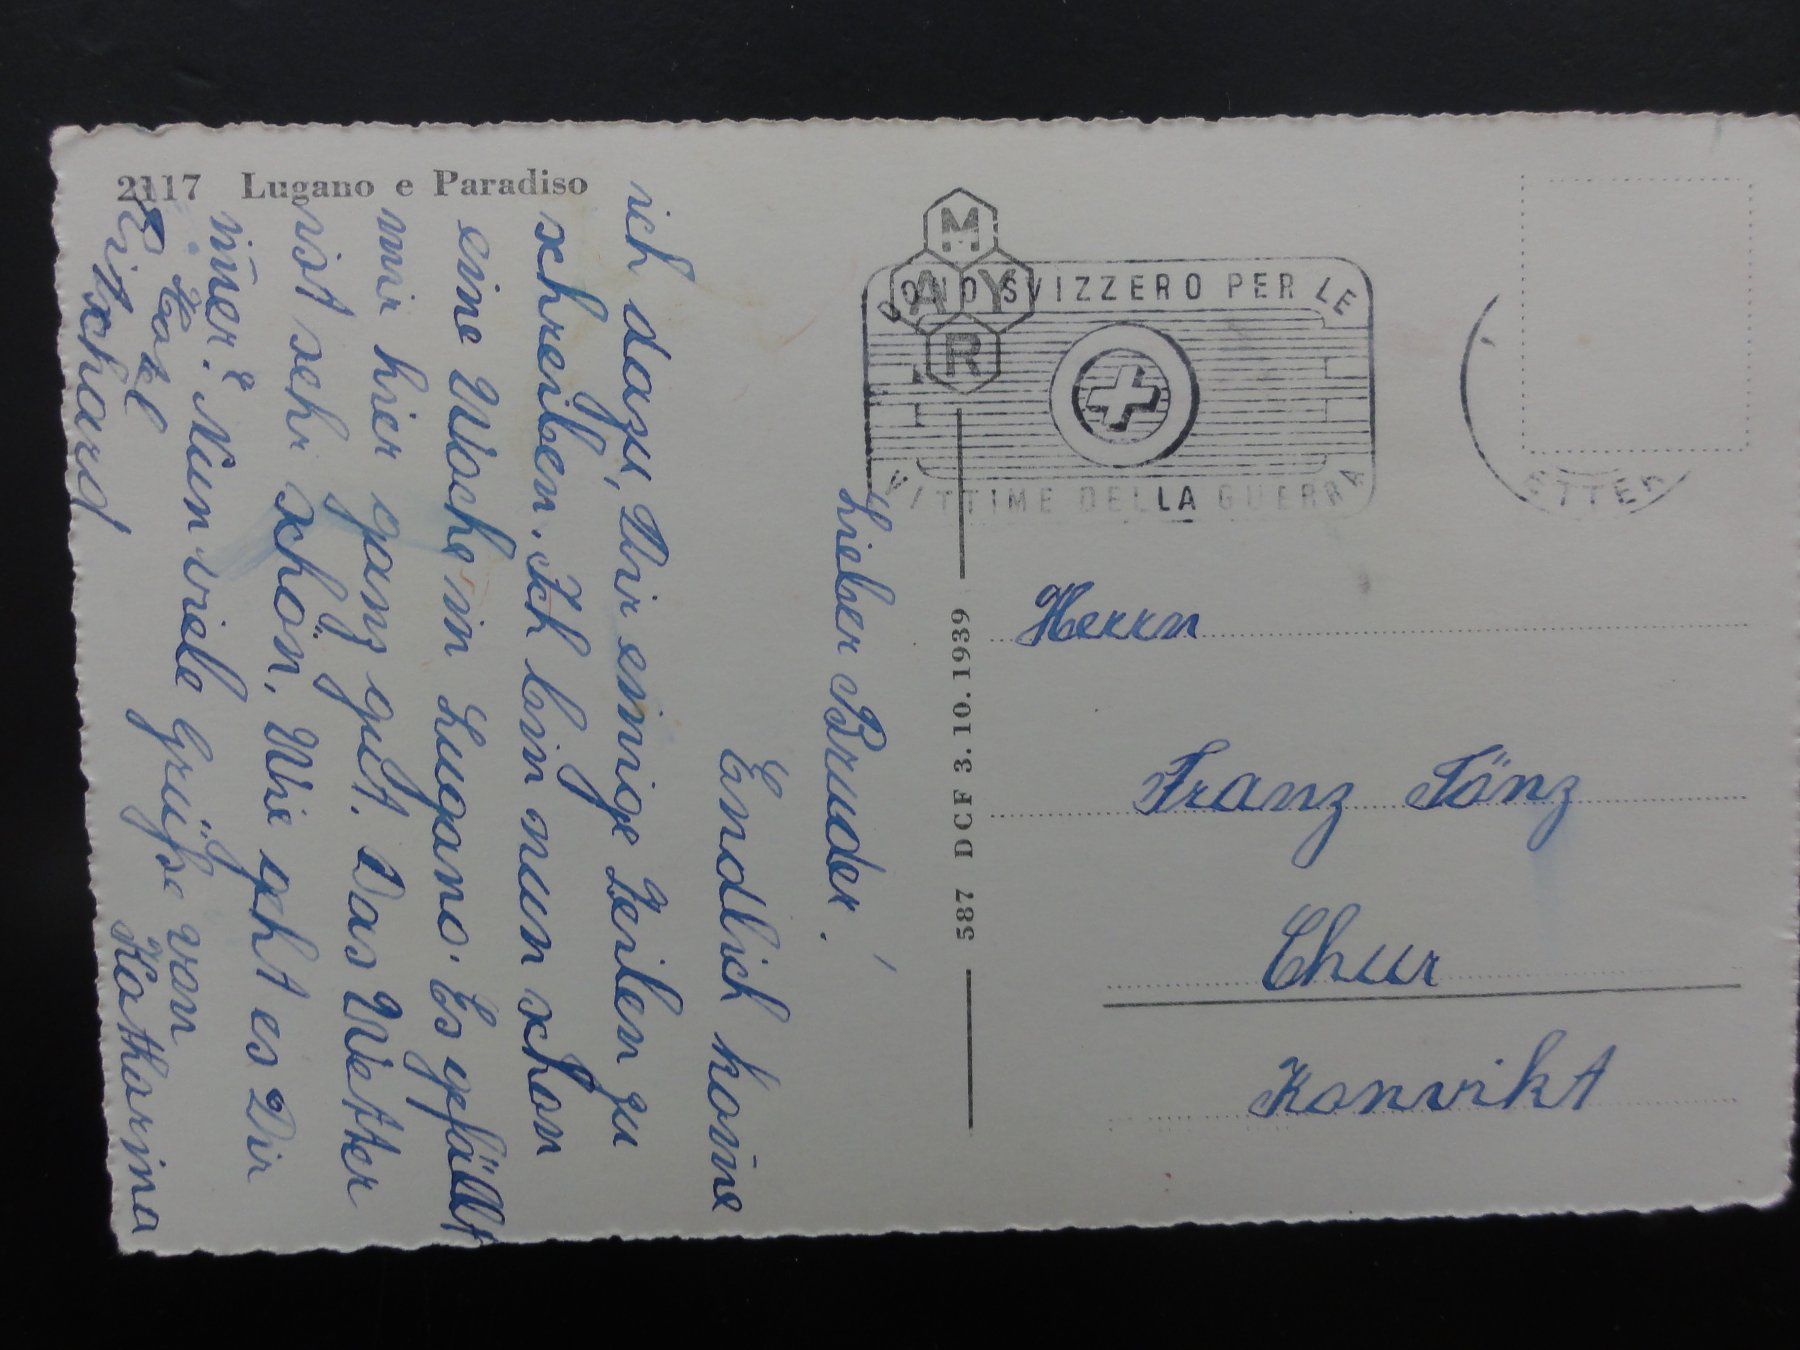 2117 Lugano e Paradiso
Lieber Bruder!
Endlich kom̄e
ich dazu, Dir einige Zeilen zu
schreiben. Ich bin nun schon
eine Woche in Lugano. Es gefällt
mir hier ganz gut. Das Wetter
ist sehr schön. Wie geht es Dir
im̄er? Nun viele Grüße von
Katharina
Hotel
Ritschard
MAYR
587 DCF 3.10.1939
DONO SVIZZERO PER LE
VITTIME DELLA GUERRA
Herrn
Franz Tönz
Chur
Konvikt